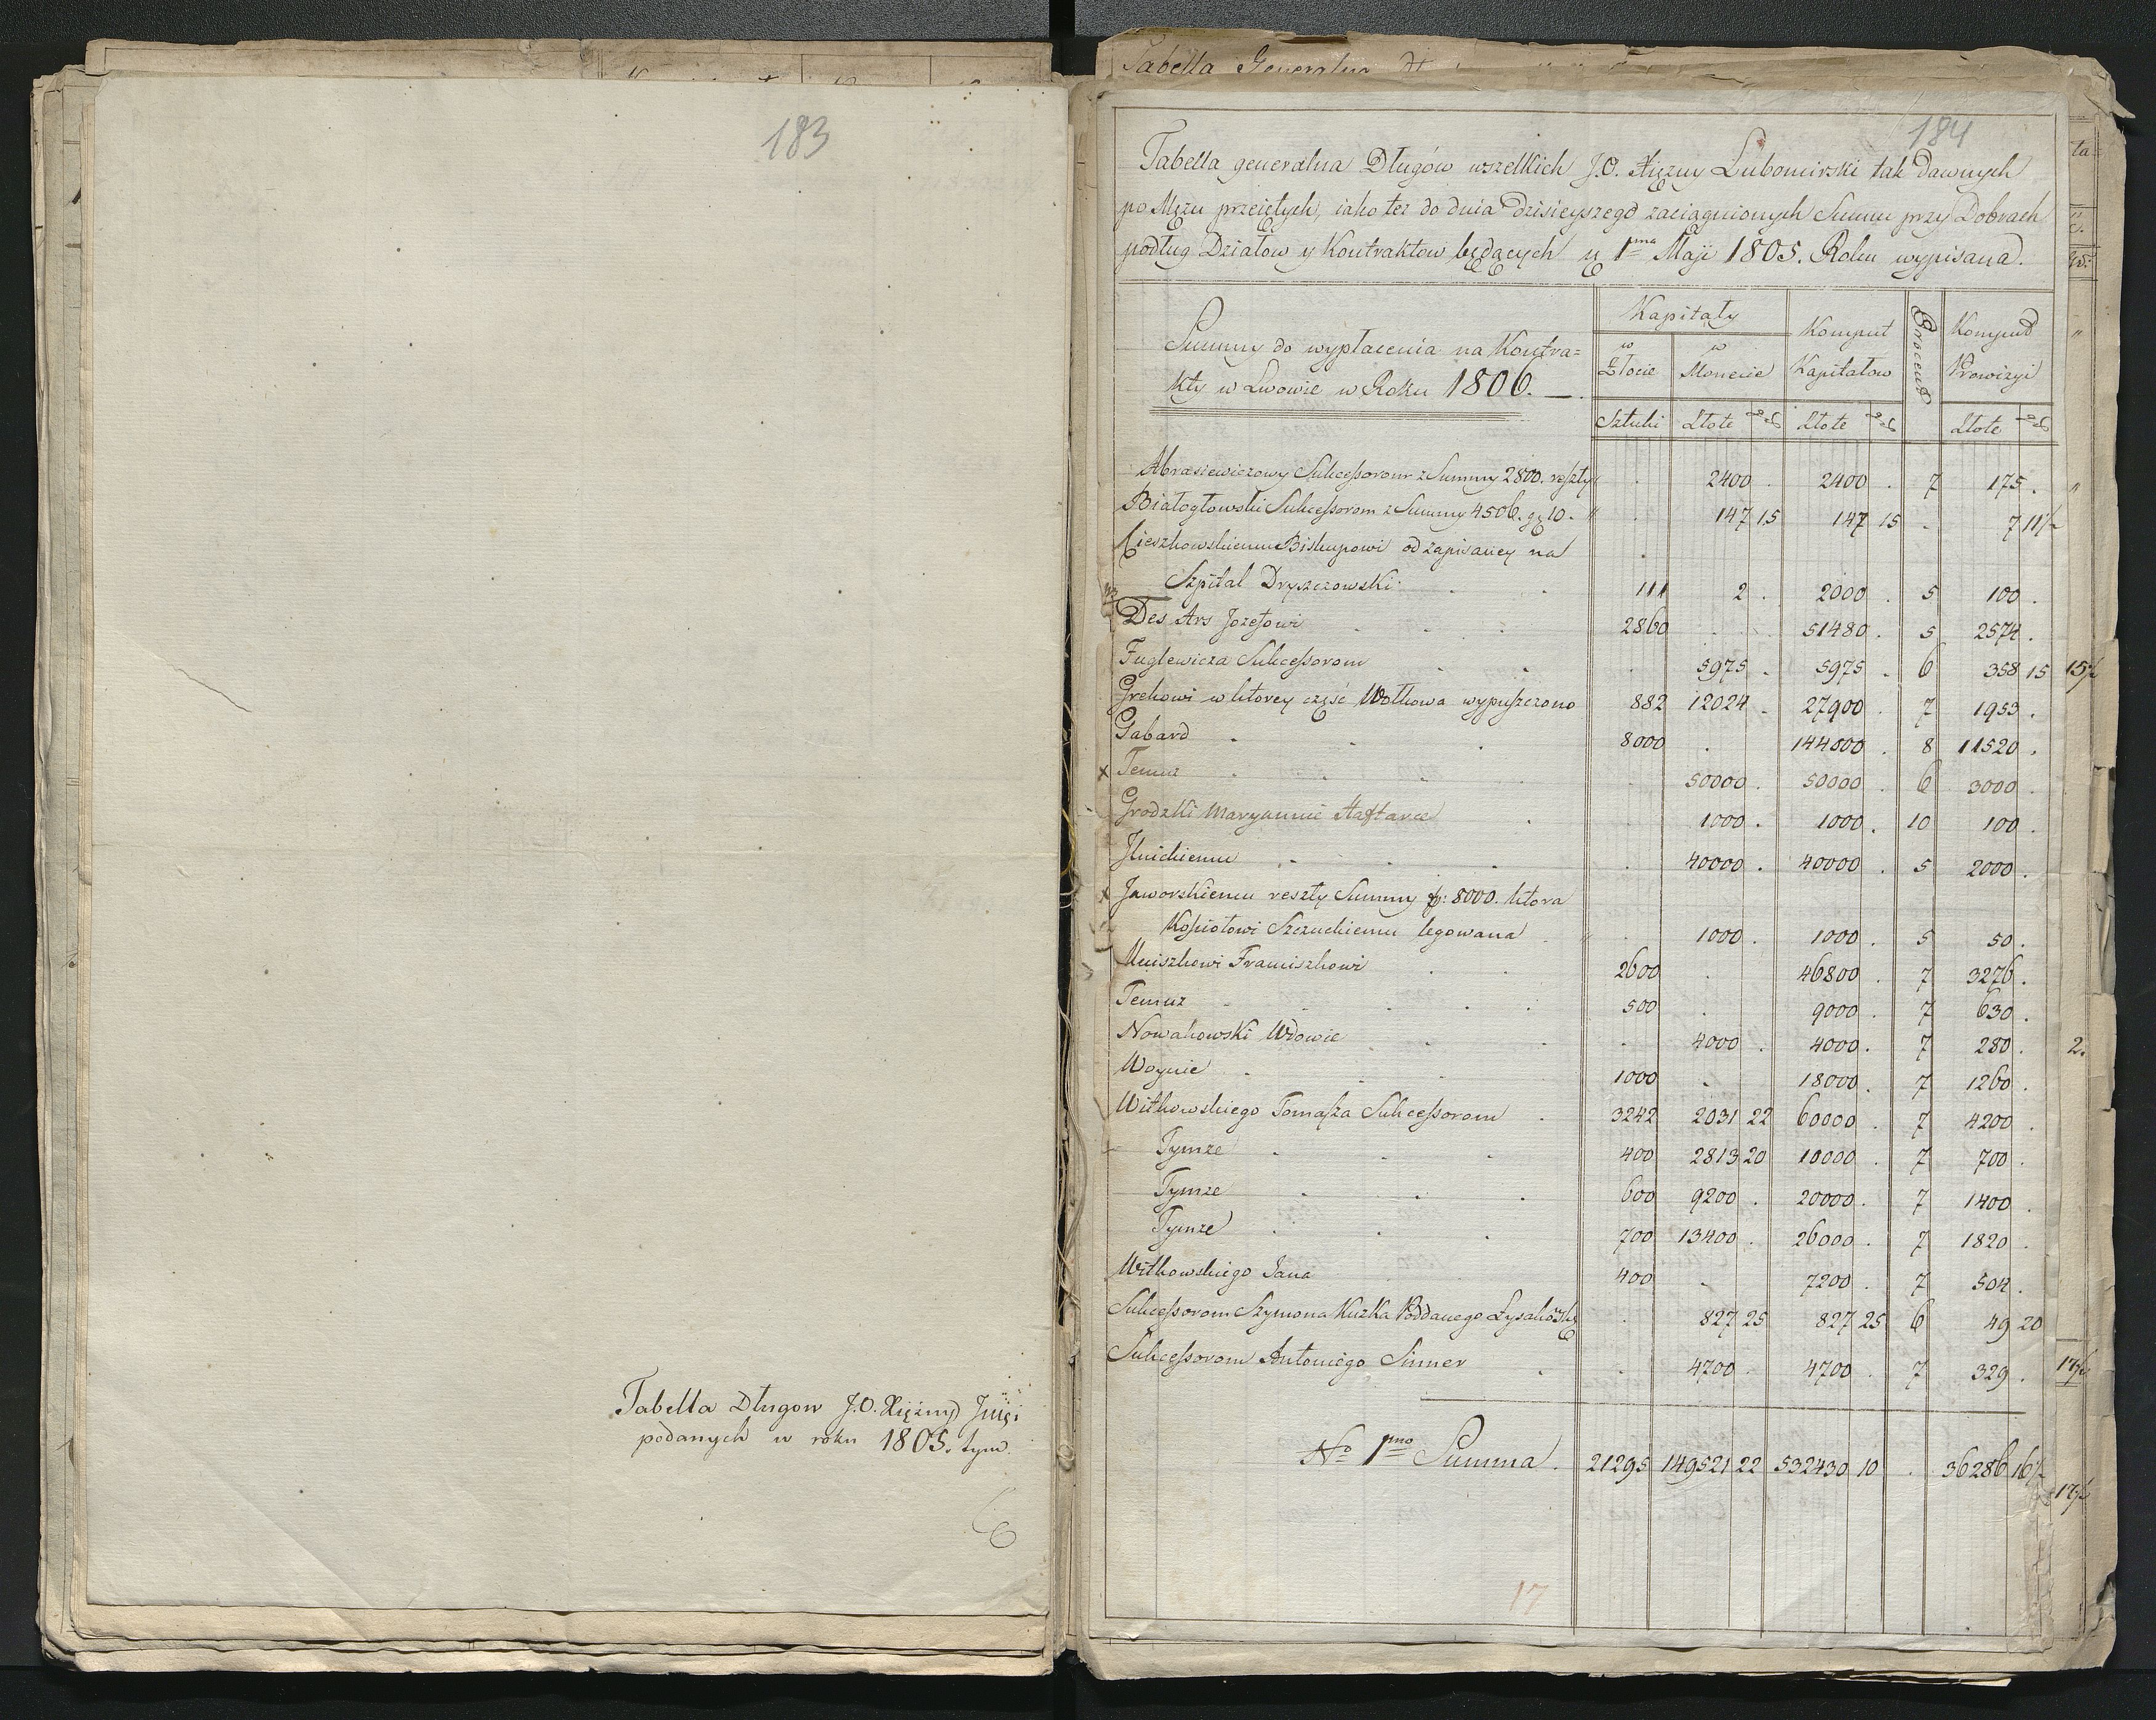 183
Tabella Długow J.O. Xiężny Jmci
podanych w roku 1805. tym.
Tabella Generalna
184
Tabella generalna Długów wszelkich J.O. Xiężny Lubomirski tak dawnych
po Mężu przeiętych, iako też do dnia dzisieyszego zaciągnionych Summ przy Dobrach
podług Działow y Kontraktow będących y 1ma Maji 1805. Roku wypisana.
Summy do wypłacenia na Kontra=
kty w Lwowie w Roku 1806. —
Kapitały
w Złocie
w Monecie
Komput Kapitałow
Procent
Komput Prowizyi
Sztuki Złote gr Złote gr Złote gr
Abrasiewiczowy Sukcessorom z Summy 2800. reszty " . 2400 . 2400 . 7 175 .
Białogłowski Sukcessorom z Summy 4506. gr 10. " . 147 15 147 15 . 7 11½
Cieszkowskiemu Biskupowi od zapisaney na
Szpital Dryszczowski 111 2 . 2000 . 5 100 .
Des Ars Jozefowi 2860 . . 51480 . 5 2574 .
Fuglewicza Sukcessorom . 5975 . 5975 . 6 358 15
Grekowi w ktorey część Wołkowa wypuszczono 882 12024 . 27900 . 7 1953 .
Gabard 8000 . 144000 . 8 11520 .
x Temuz . 50000 . 50000 . 6 3000 .
Grodzki Maryannie Haftarce . 1000 . 1000 . 10 100 .
Ilnickiemu . 40000 . 40000 . 5 2000 .
x Jaworskiemu reszty Summy f: 8000. ktora
Kościołowi Szczuckiemu legowana " . 1000 . 1000 . 5 50 .
Mniszkowi Franciszkowi 2600 . 46800 . 7 3276 .
Temuz 500 . 9000 . 7 630 .
Nowakowski Wdowie . 4000 . 4000 . 7 280 .
Woynie 1000 . 18000 . 7 1260 .
Witkowskiego Tomasza Sukcessorom 3242 2031 22 60000 . 7 4200 .
Tymże 400 2813 20 10000 . 7 700 .
Tymże 600 9200 . 20000 . 7 1400 .
Tymże 700 13400 . 26000 . 7 1820 .
Witkowskiego Jana 400 . 7200 . 7 504 .
Sukcessorom Szymona Kuzka Poddanego . 827 25 827 25 6 49 20
Sukcessorom Antoniego Simmer . 4700 . 4700 . 7 329 .
No 1mo Summa. 21295 149521 22 532430 10 . 36286 16½
17